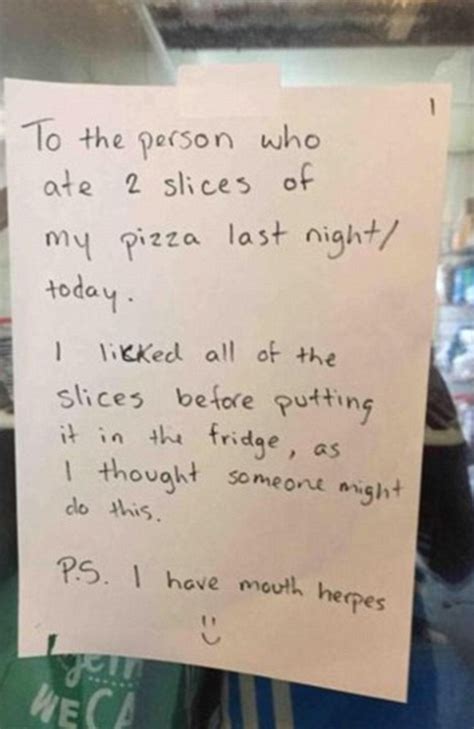 1
To the person who
ate 2 slices of
my pizza last night/
today.
I licked all of the
slices before putting
it in the fridge, as
I thought someone might
do this.
P.S. I have mouth herpes
WE CA